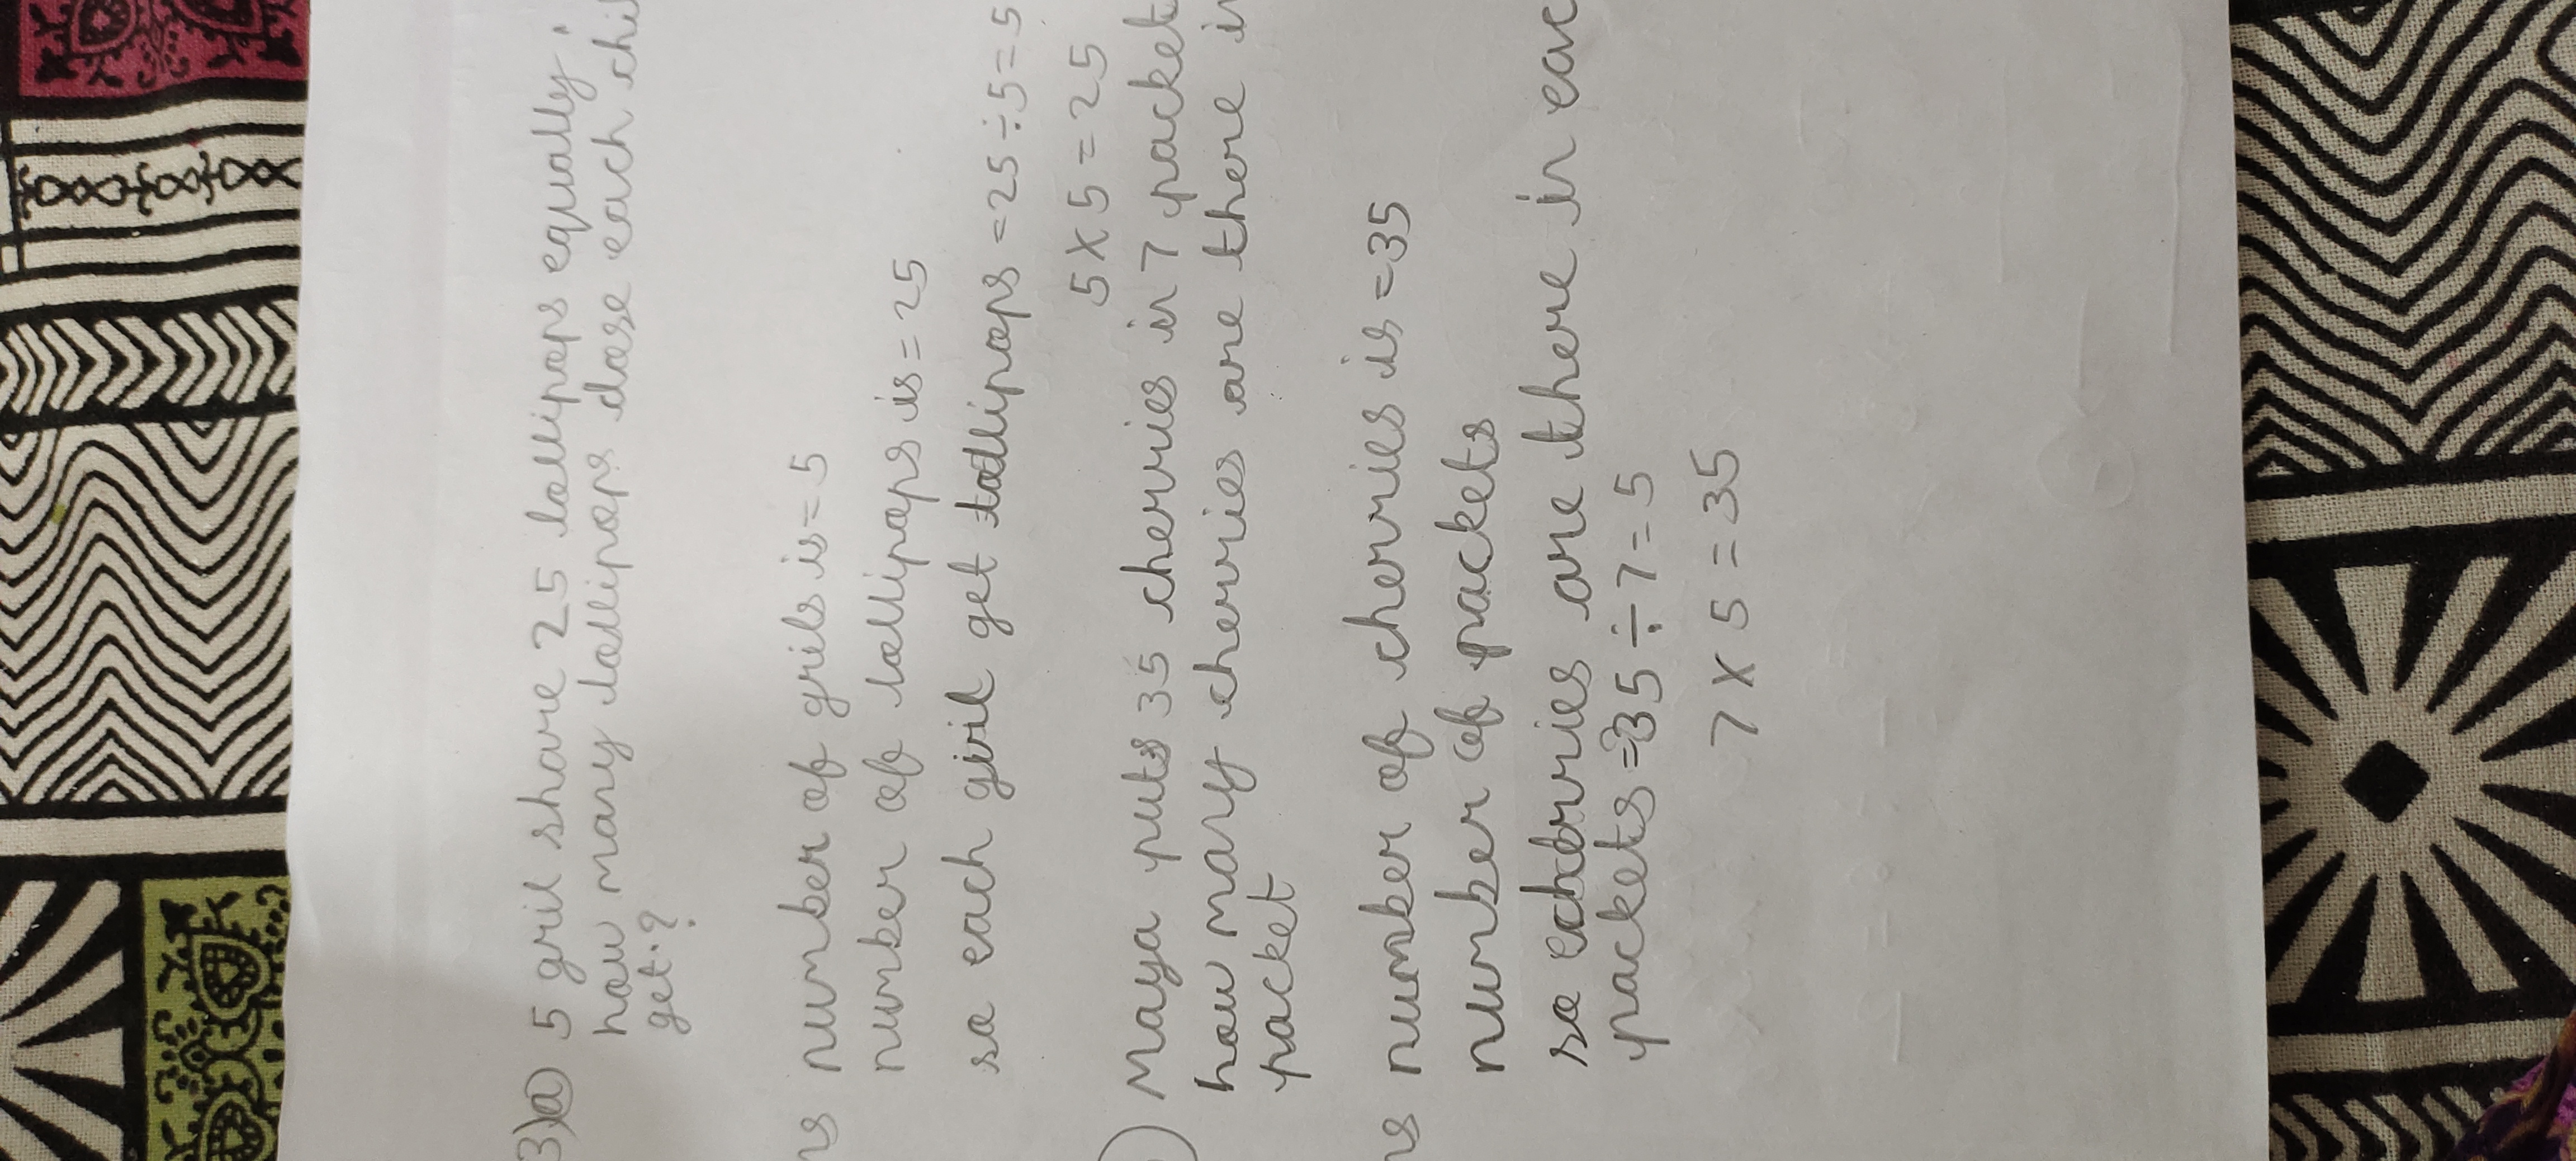 3) a 5 gril share 25 lollipops equally.
how many lollipops dose each chil
get.?
ns number of grils is=5
number of lollipops is=25
so each giril get lollipops =25÷5=5
5X5=25
) Maya puts 35 cherries in 7 packet
how many cherries are there in
packet
ns number of cherries is =35
number of packets
so cherries are there in eac
packets=35÷7=5
7X5=35